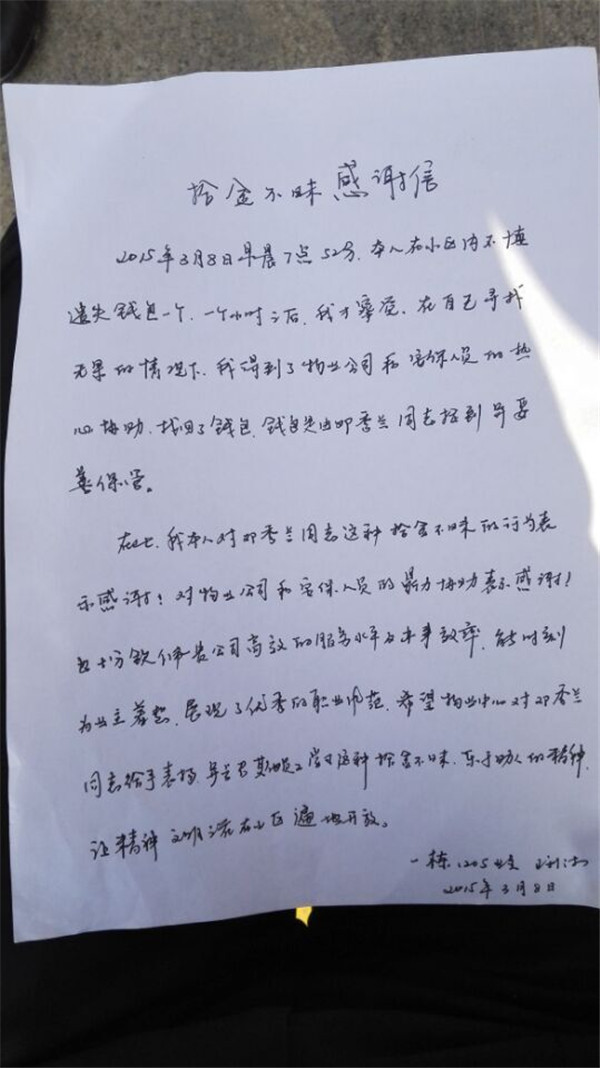 拾金不昧感谢信
2015年3月8日早晨7点52分,本人在小区内不慎
遗失钱包一个,一个小时之后,我才察觉,在自己寻找
无果的情况下,我得到了物业公司和安保人员的热
心协助,找回了钱包,钱包是由邓香兰同志捡到并妥
善保管。
在此,我本人对邓香兰同志这种拾金不昧的行为表
示感谢!对物业公司和安保人员的鼎力协助表示感谢!
也十分钦佩贵公司高效的服务水平及办事效率,能时刻
为业主着想,展现了优秀的职业风范,希望物业中心对邓香兰
同志给予表扬,并号召学习这种拾金不昧、乐于助人的精神,
让精神文明之花在小区遍地开放。
一栋1205业主
2015年3月8日